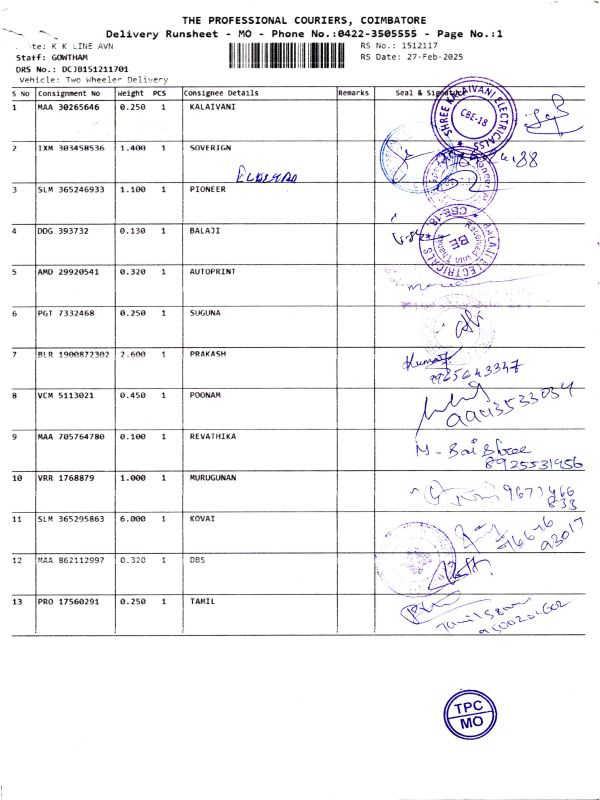 THE PROFESSIONAL COURIERS, COIMBATORE
Delivery Runsheet - MO - Phone No.:0422-3505555 - Page No.:1
K K LINE AVN RS No.: 1512117
Staff: GOWTHAM RS Date: 27-Feb-2025
DRS No.: DCJB151211701
Vehicle: Two Wheeler Delivery
S No Consignment No Weight PCS Consignee Details Remarks Seal &
1 MAA 30265646 0.250 1 KALAIVANI
SHREE KALAIVANI ELECTRICALS
CBE-18
2 IXM 303458536 1.400 1 SOVERIGN
3 SLM 365246933 1.100 1 PIONEER
4 DDG 393732 0.130 1 BALAJI
BALAJI ELECTRICALS
CBE-18
Received with Thanks
5 AMD 29920541 0.320 1 AUTOPRINT
6 PGT 7332468 0.250 1 SUGUNA
7 BLR 1900872302 2.600 1 PRAKASH
Kumar
8 VCM 5113021 0.450 1 POONAM
9 MAA 705764780 0.100 1 REVATHIKA
M - Bai Shree
8925531956
10 VRR 1768879 1.000 1 MURUGUNAN
11 SLM 365295863 6.000 1 KOVAI
12 MAA 862112997 0.320 1 DBS
13 PRO 17560291 0.250 1 TAMIL
TPC
MO